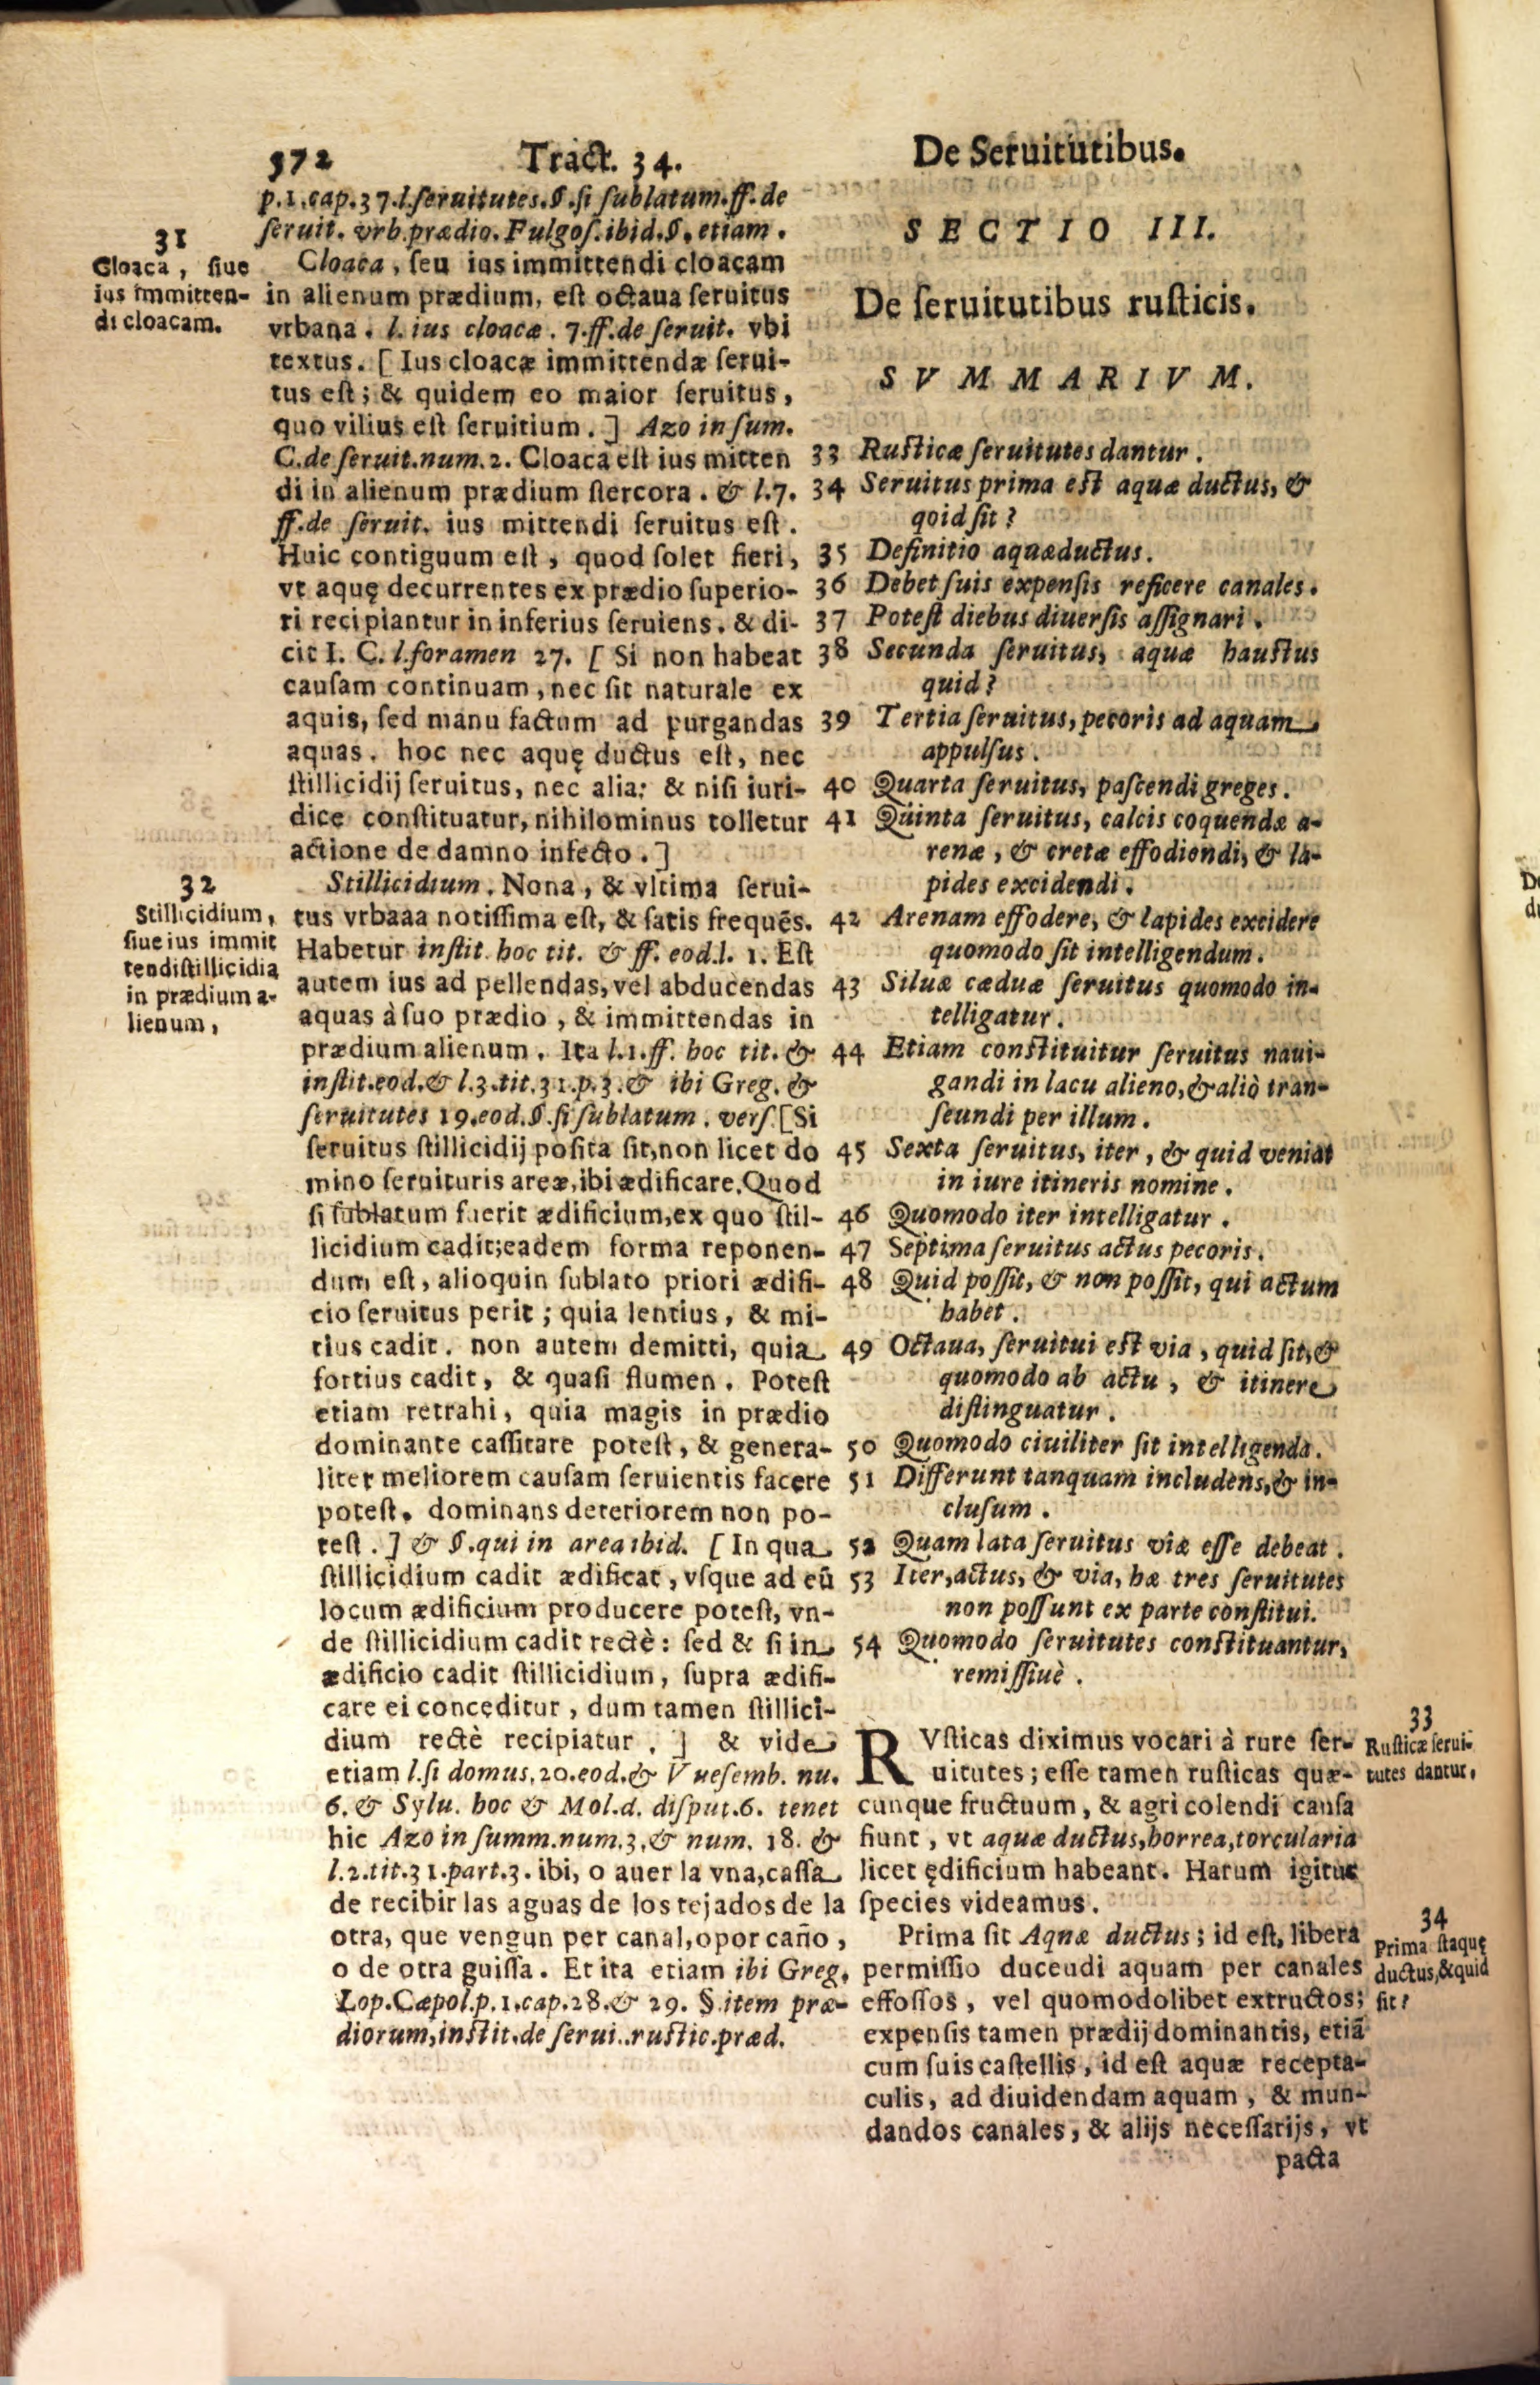 572 Tract. 34. De Seruitutibus.
p.1.cap.37.l.seruitutes.§.si sublatum.ff.de
seruit. vrb.prædio. Fulgos.ibid.§.etiam.
31
Cloaca, siue
ius immitten-
di cloacam.
Cloaca, seu ius immittendi cloacam
in alienum prædium, est octaua seruitus
vrbana. l. ius cloacæ. 7.ff.de seruit. vbi
textus. [Ius cloacæ immittendæ serui-
tus est; & quidem eo maior seruitus,
quo vilius est seruitium.] Azo in sum.
C.de seruit.num.2. Cloaca est ius mitten
di in alienum prædium stercora. & l.7.
ff.de seruit. ius mittendi seruitus est.
Huic contiguum est, quod solet fieri,
vt aquę decurrentes ex prædio superio-
ri recipiantur in inferius seruiens. & di-
cit I. C. l.foramen 27. [Si non habeat
causam continuam, nec sit naturale ex
aquis, sed manu factum ad purgandas
aquas. hoc nec aquę ductus est, nec
stillicidij seruitus, nec alia: & nisi iuri-
dice constituatur, nihilominus tolletur
actione de damno infecto.]
32
Stillicidium,
siue ius immit
tendi stillicidia
in prædium a-
lienum,
Stillicidium. Nona, & vltima serui-
tus vrbaaa notissima est, & satis frequẽs.
Habetur instit. hoc tit. & ff. eod.l. 1. Est
autem ius ad pellendas, vel abducendas
aquas à suo prædio, & immittendas in
prædium alienum. Ita l.1.ff. hoc tit. &
instit.eod.& l.3.tit.31.p.3.& ibi Greg. &
seruitutes 19.eod.§.si sublatum. vers. [Si
seruitus stillicidij posita sit, non licet do
mino seruituris areæ, ibi ædificare. Quod
si sublatum fuerit ædificium, ex quo stil-
licidium cadit; eadem forma reponen-
dum est, alioquin sublato priori ædifi-
cio seruitus perit; quia lentius, & mi-
tius cadit. non autem demitti, quia
fortius cadit, & quasi flumen. Potest
etiam retrahi, quia magis in prædio
dominante cassitare potest, & genera-
liter meliorem causam seruientis facere
potest. dominans deteriorem non po-
test.] & §.qui in area ibid. [In qua
stillicidium cadit ædificat, vsque ad eũ
locum ædificium producere potest, vn-
de stillicidium cadit rectè: sed & si in
ædificio cadit stillicidium, supra ædifi-
care ei conceditur, dum tamen stillici-
dium rectè recipiatur.] & vide
etiam l.si domus, 20.eod.& Vuesemb. nu.
6. & Sylu. hoc & Mol.d. disput.6. tenet
hic Azo in summ.num.3.& num. 18. &
l.2.tit.31.part.3. ibi, o auer la vna, cassa
de recibir las aguas de los tejados de la
otra, que vengun per canal, o por caño,
o de otra guissa. Et ita etiam ibi Greg.
Lop.Cæpol.p.1.cap.28.& 29. §.item præ-
diorum, instit.de serui..rustic.præd.
SECTIO III.
De seruitutibus rusticis.
SVMMARIVM.
33 Rusticæ seruitutes dantur.
34 Seruitus prima est aquæ ductus, &
qoid sit?
35 Definitio aquæductus.
36 Debet suis expensis reficere canales.
37 Potest diebus diuersis assignari.
38 Secunda seruitus, aquæ haustus
quid?
39 Tertia seruitus, pecoris ad aquam
appulsus.
40 Quarta seruitus, pascendi greges.
41 Quinta seruitus, calcis coquendæ a-
renæ, & cretæ effodiendi, & la-
pides excidendi.
42 Arenam effodere, & lapides excidere
quomodo sit intelligendum.
43 Siluæ cæduæ seruitus quomodo in-
telligatur.
44 Etiam constituitur seruitus naui-
gandi in lacu alieno, & aliò tran-
seundi per illum.
45 Sexta seruitus, iter, & quid veniat
in iure itineris nomine.
46 Quomodo iter intelligatur.
47 Septima seruitus actus pecoris.
48 Quid possit, & non possit, qui actum
habet.
49 Octaua, seruitui est via, quid sit, &
quomodo ab actu, & itinere
distinguatur.
50 Quomodo ciuiliter sit intelligenda.
51 Differunt tanquam includens, & in-
clusum.
52 Quam lata seruitus viæ esse debeat.
53 Iter, actus, & via, hæ tres seruitutes
non possunt ex parte constitui.
54 Quomodo seruitutes constituantur,
remissiuè.
33
Rusticæ serui-
tutes dantur,
RVsticas diximus vocari à rure ser-
uitutes; esse tamen rusticas quæ-
cunque fructuum, & agri colendi causa
fiunt, vt aquæ ductus, horrea, torcularia
licet ędificium habeant. Harum igitur
species videamus.
34
Prima staquę
ductus, & quid
sit?
Prima sit Aqnæ ductus; id est, libera
permissio duceudi aquam per canales
effossos, vel quomodolibet extructos;
expensis tamen prædij dominantis, etiã
cum suis castellis, id est aquæ recepta-
culis, ad diuidendam aquam, & mun-
dandos canales, & alijs necessarijs, vt
pacta